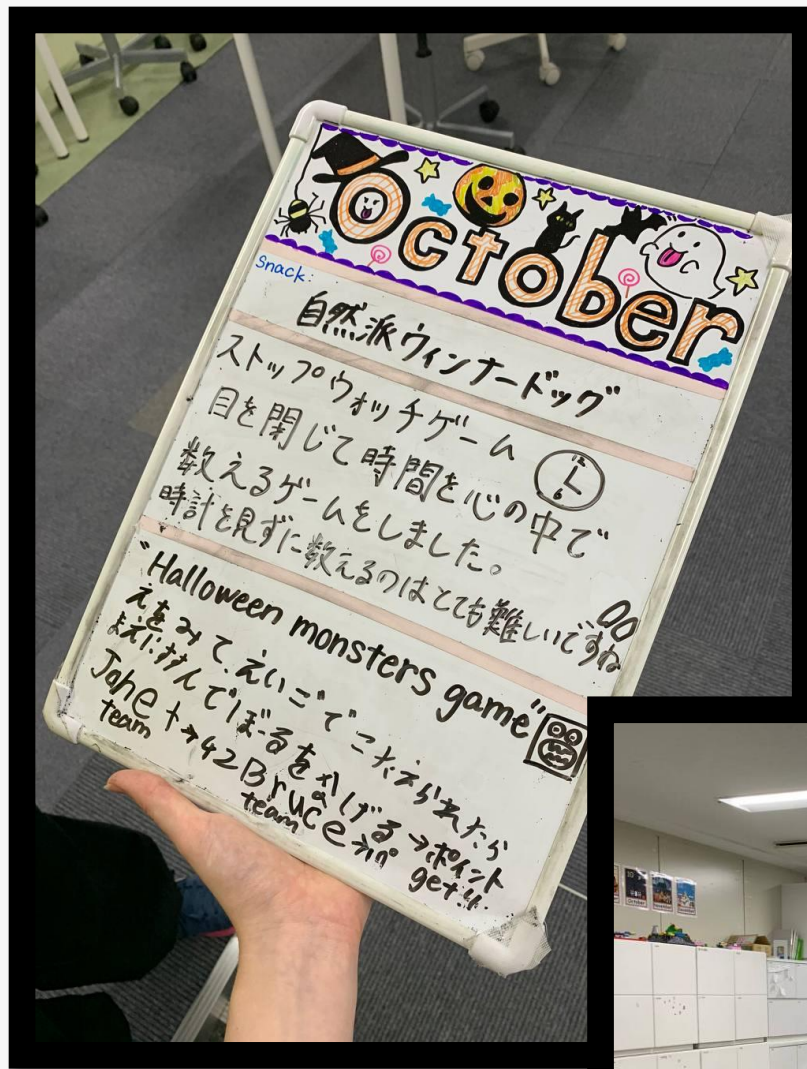 October
Snack:
自然派ウィンナードッグ
ストップウォッチゲーム
目を閉じて時間を心の中で
数えるゲームをしました。
時計を見ずに数えるのはとても難しいですね
"Halloween monsters game"
えをみて、えいごでこたえられたら
まえにすすんでぼーるをなげる→ポイント
get!!
Jane team → 42
Bruce team →
October